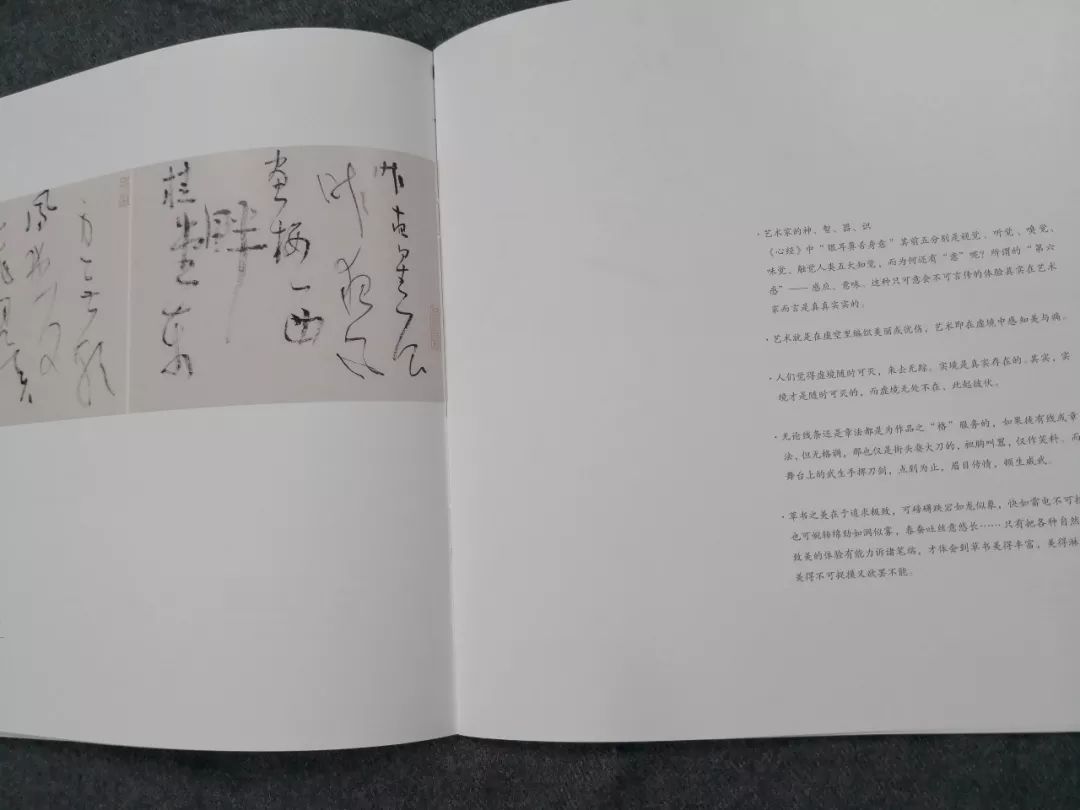 昨夜星辰
昨夜风
画楼西
畔
桂堂东
身无彩
·艺术家的神、智、器、识
《心经》中“眼耳鼻舌身意”其前五分别是视觉、听觉、嗅觉、
味觉、触觉人类五大知觉，而为何还有“意”呢？所谓的“第六
感”——感应、意味。这种只可意会不可言传的体验真实在艺术
家而言是真真实实的。
·艺术就是在虚空里编织美丽或忧伤，艺术即在虚境中感知美与痛。
·人们觉得虚境随时可灭，来去无踪。实境是真实存在的。其实，实
境才是随时可灭的，而虚境无处不在、此起彼伏。
·无论线条还是章法都是为作品之“格”服务的，如果徒有线或章
法、但无格调，那也仅是街头耍大刀的，袒胸叫嚣，仅作笑料。而
舞台上的武生手挥刀剑，点到为止，眉目传情，顿生威武。
·草书之美在于追求极致，可磅礴跌宕如龙似象，快如雷电不可
也可婉转绵劲如涧似雾，春蚕吐丝意悠长……只有把各种自然
致美的体验有能力诉诸笔端，才体会到草书美得丰富，美得淋
美得不可捉摸又欲罢不能。